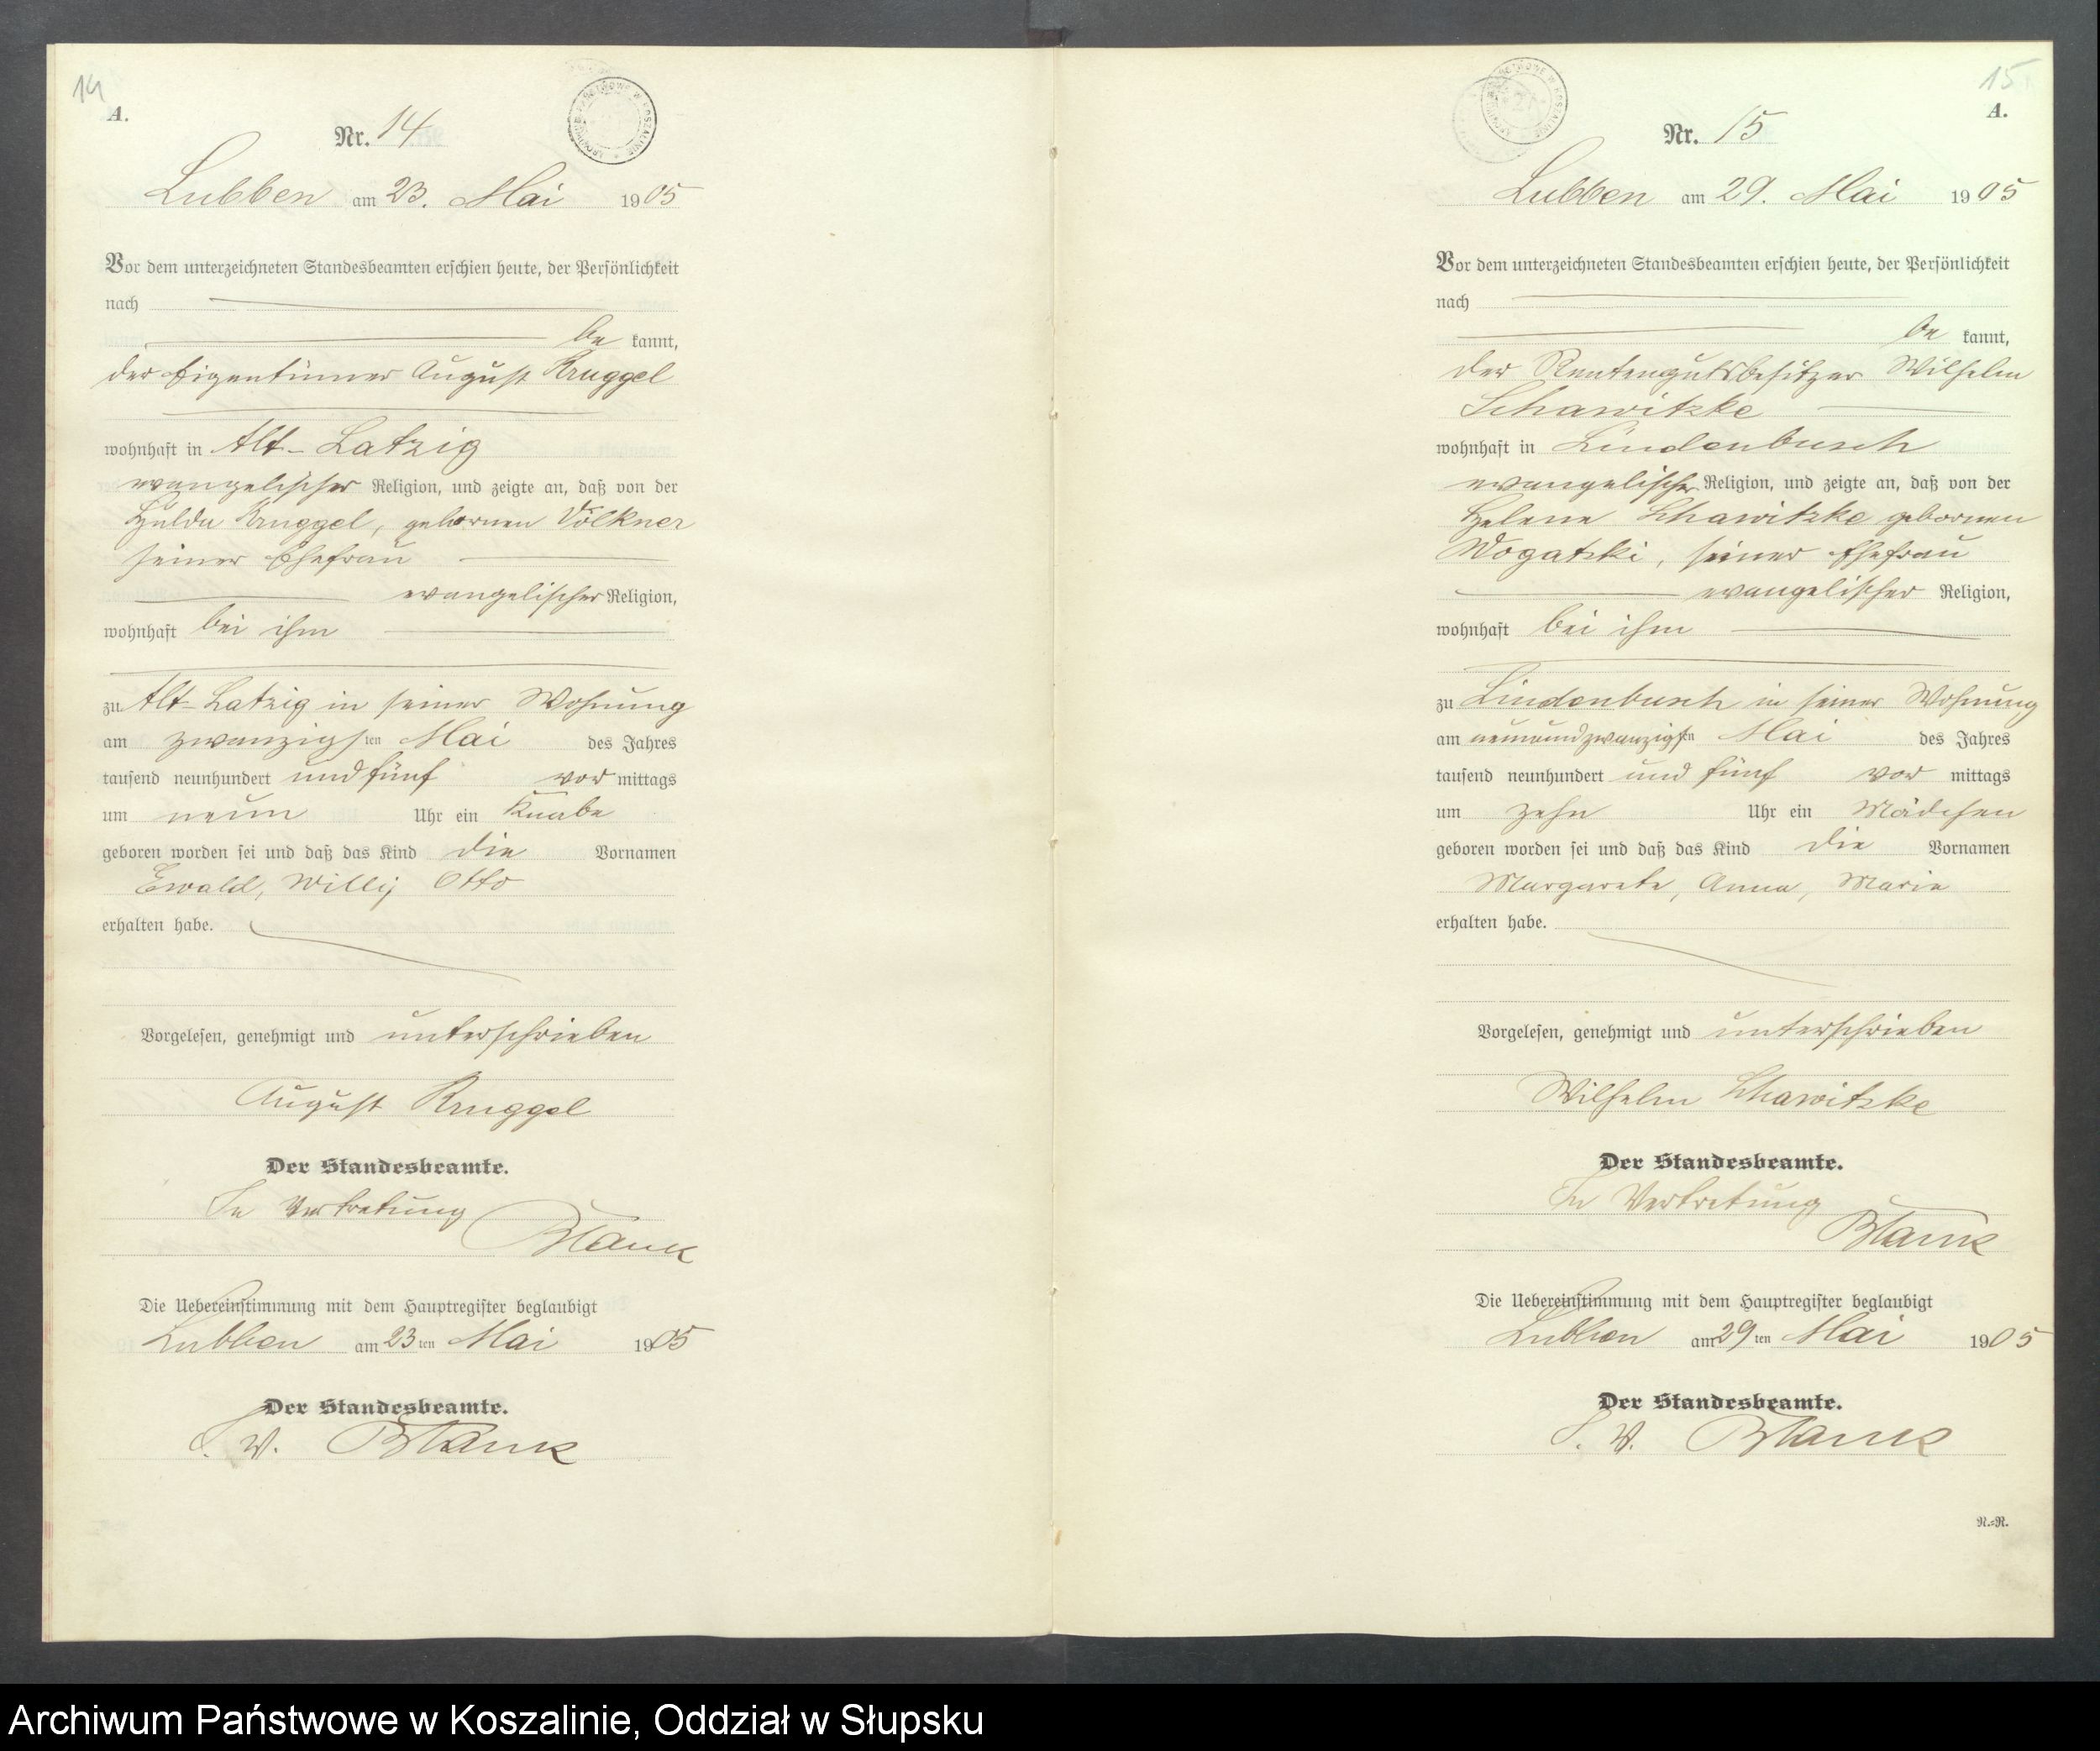 14
A.
Nr. 14
Lubben am 23. Mai 1905
Vor dem unterzeichneten Standesbeamten erschien heute, der Persönlichkeit
nach
be kannt,
der Eigentümer August Kruggel
wohnhaft in Alt-Latzig
evangelischer Religion, und zeigte an, daß von der
Hulda Kruggel, gebornen Völkner
seiner Ehefrau
evangelischer Religion,
wohnhaft bei ihm
zu Alt-Latzig in seiner Wohnung
am zwanzigsten Mai des Jahres
tausend neunhundert und fünf vor mittags
um neun Uhr ein Knabe
geboren worden sei und daß das Kind die Vornamen
Ewald, Willi, Otto
erhalten habe.
Vorgelesen, genehmigt und unterschrieben
August Kruggel
Der Standesbeamte.
In Vertretung
Blank
Die Uebereinstimmung mit dem Hauptregister beglaubigt
Lubben am 23ten Mai 1905
Der Standesbeamte.
I. V. Blank
15
A.
Nr. 15
Lubben am 29. Mai 1905
Vor dem unterzeichneten Standesbeamten erschien heute, der Persönlichkeit
nach
be kannt,
der Rentengutsbesitzer Wilhelm
Schawitzke
wohnhaft in Lindenbusch
evangelischer Religion, und zeigte an, daß von der
Helene Schawitzke gebornen
Wogatzki, seiner Ehefrau
evangelischer Religion,
wohnhaft bei ihm
zu Lindenbusch in seiner Wohnung
am neunundzwanzigsten Mai des Jahres
tausend neunhundert und fünf vor mittags
um zehn Uhr ein Mädchen
geboren worden sei und daß das Kind die Vornamen
Margarete, Anna, Marie
erhalten habe.
Vorgelesen, genehmigt und unterschrieben
Wilhelm Schawitzke
Der Standesbeamte.
In Vertretung
Blank
Die Uebereinstimmung mit dem Hauptregister beglaubigt
Lubben am 29ten Mai 1905
Der Standesbeamte.
I. V. Blank
R.=R.
Archiwum Państwowe w Koszalinie, Oddział w Słupsku